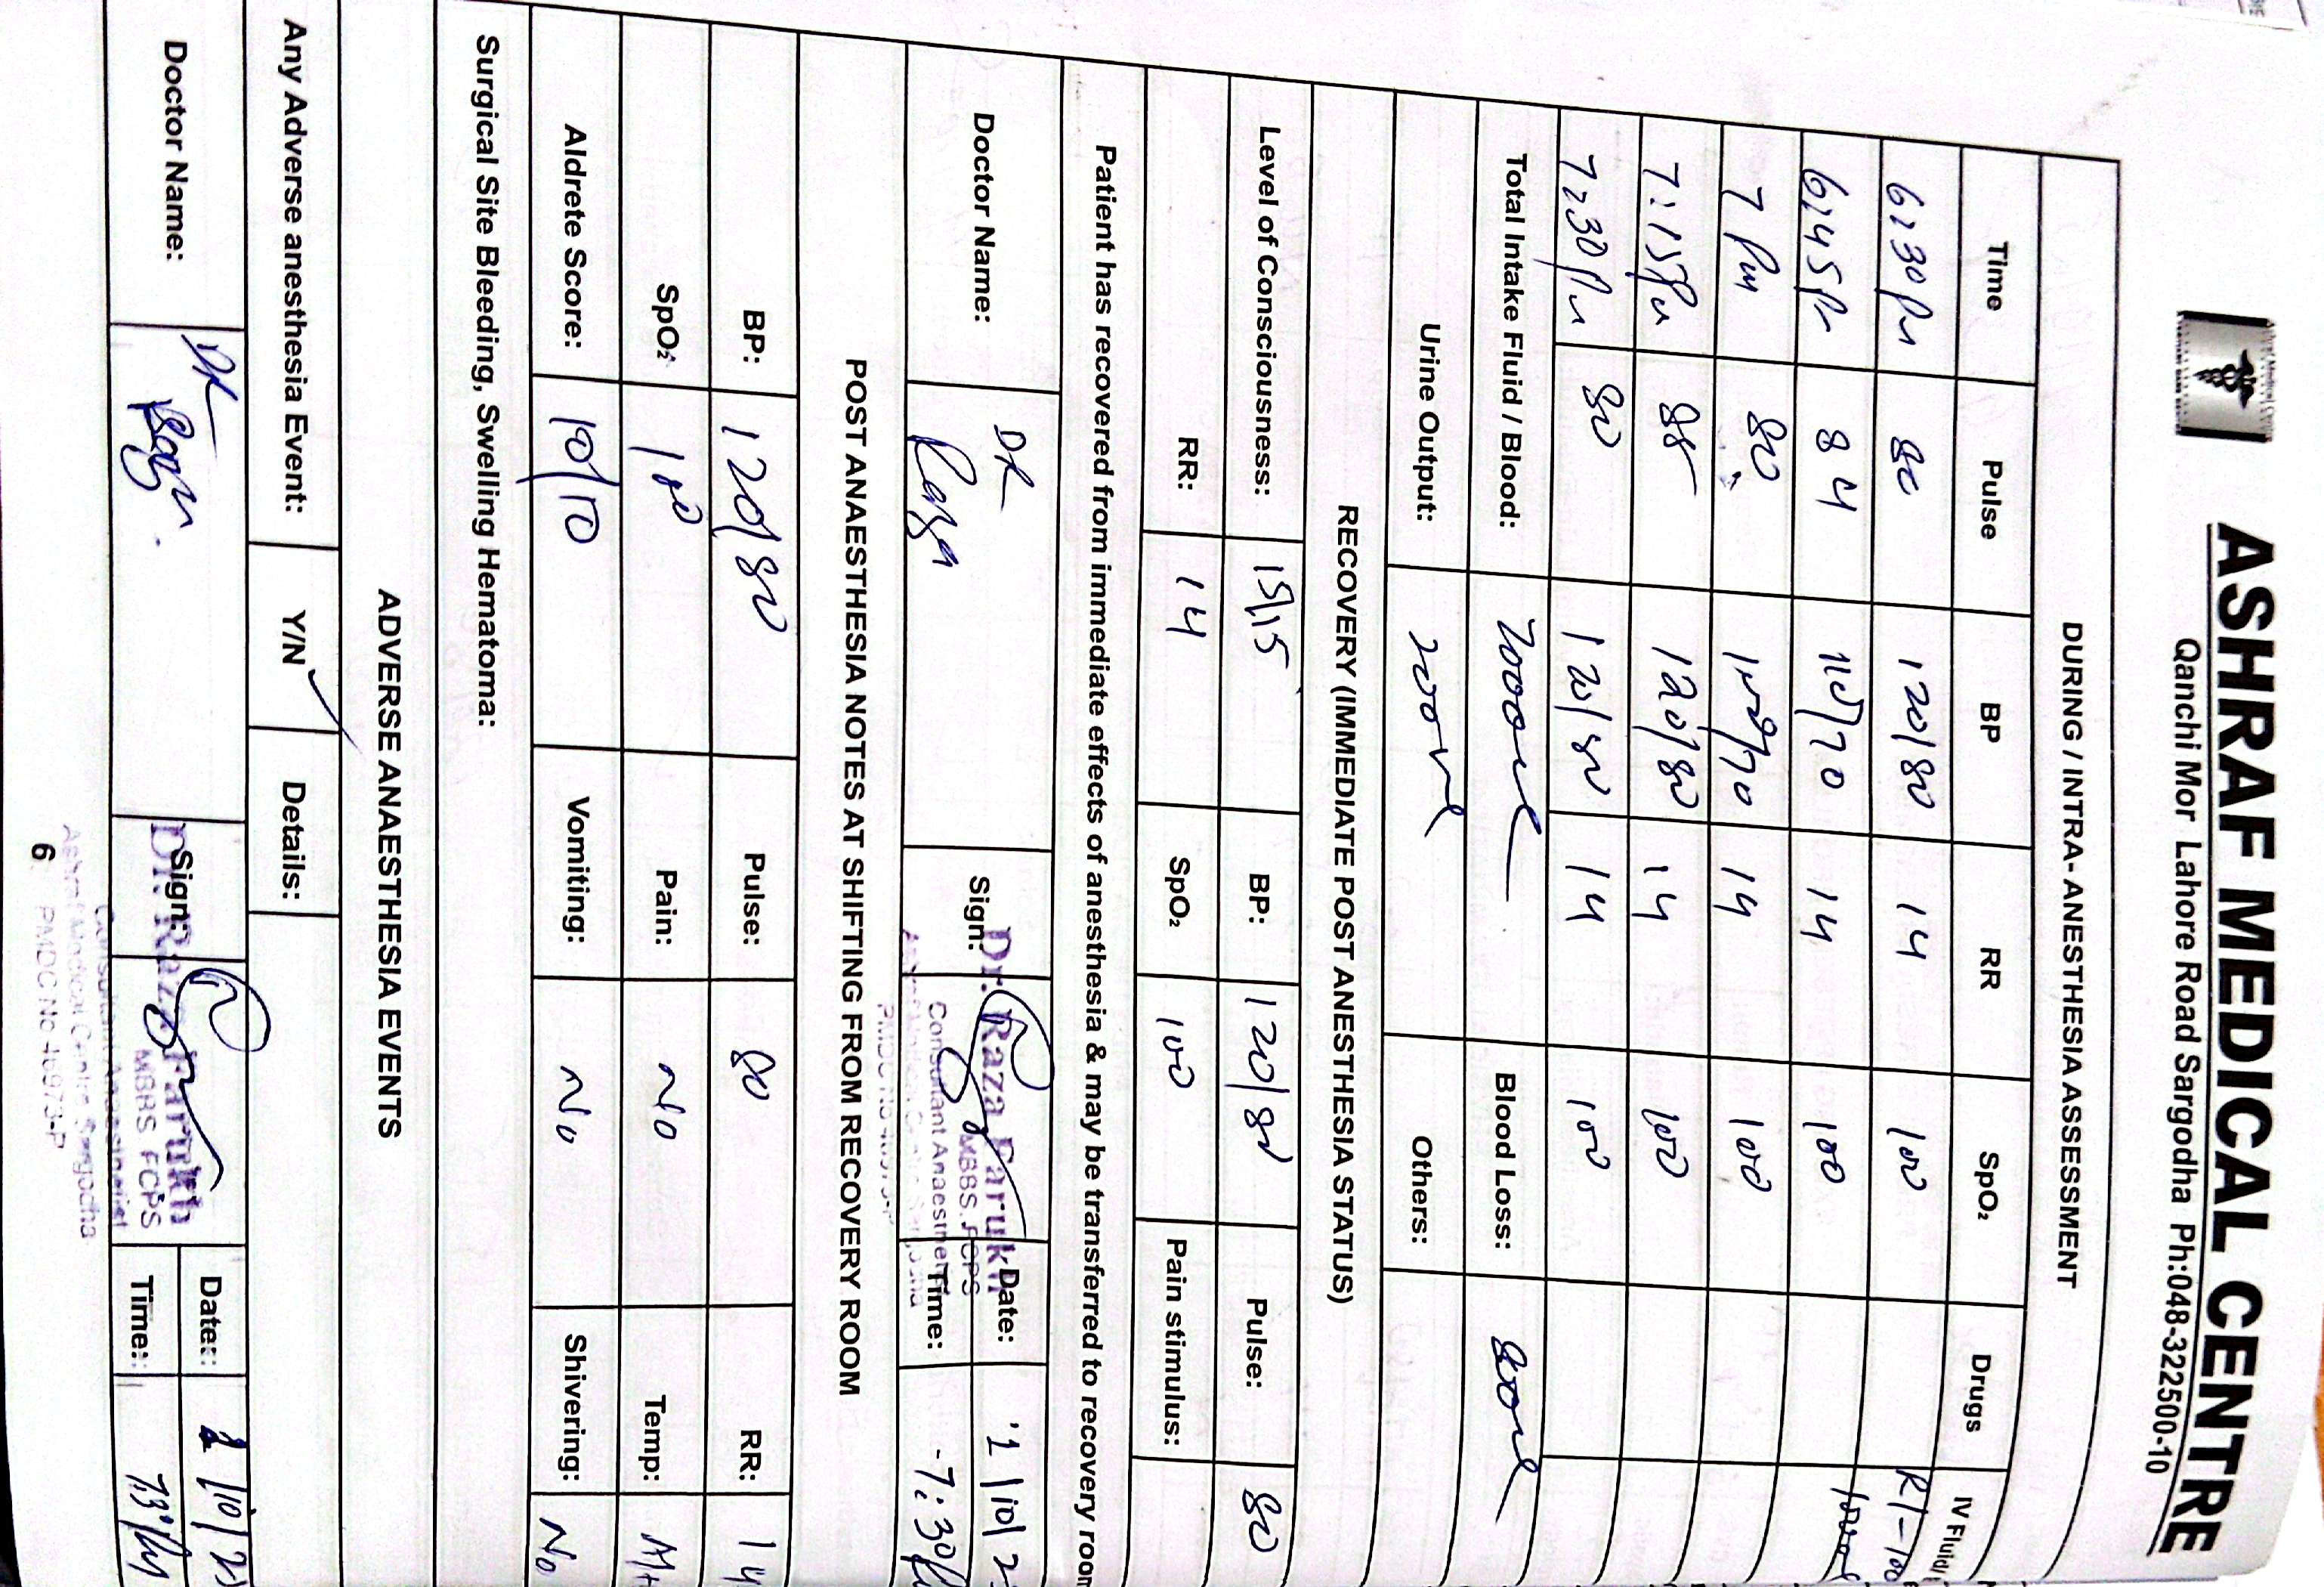 ASHRAF MEDICAL CENTRE
Qanchi Mor Lahore Road Sargodha Ph:048-322500-10
DURING / INTRA- ANESTHESIA ASSESSMENT
Time Pulse BP RR SpO₂ Drugs IV Fluid/
6:30 pm 80 120/80 14 100
6:45 pm 84 110/70 14 100
7 pm 80 100/70 14 100
7:15 pm 88 120/80 14 100
7:30 pm 80 120/80 14 100
Total Intake Fluid / Blood: 2000ml Blood Loss:
Urine Output: 200ml Others:
RECOVERY (IMMEDIATE POST ANESTHESIA STATUS)
Level of Consciousness: 15/15 BP: 120/80 Pulse: 80
RR: 14 SpO₂ 100 Pain stimulus:
Patient has recovered from immediate effects of anesthesia & may be transferred to recovery room
Doctor Name: DR Raza Sign: Date: 1/10/2
Time: 7:30
Dr. Raza Farukh
MBBS. FCPS
Consultant Anaesthetist
POST ANAESTHESIA NOTES AT SHIFTING FROM RECOVERY ROOM
BP: 120/80 Pulse: 80 RR: 14
SpO₂: 100 Pain: No Temp:
Aldrete Score: 10/10 Vomiting: No Shivering: No
Surgical Site Bleeding, Swelling Hematoma:
ADVERSE ANAESTHESIA EVENTS
Any Adverse anesthesia Event: Y/N Details:
Doctor Name: DR Raza Sign: Date: 1/10/2
Time:
Dr. Raza Farukh
MBBS FCPS
Consultant Anaesthetist
Ashraf Medical Centre Sargodha
PMDC No
6